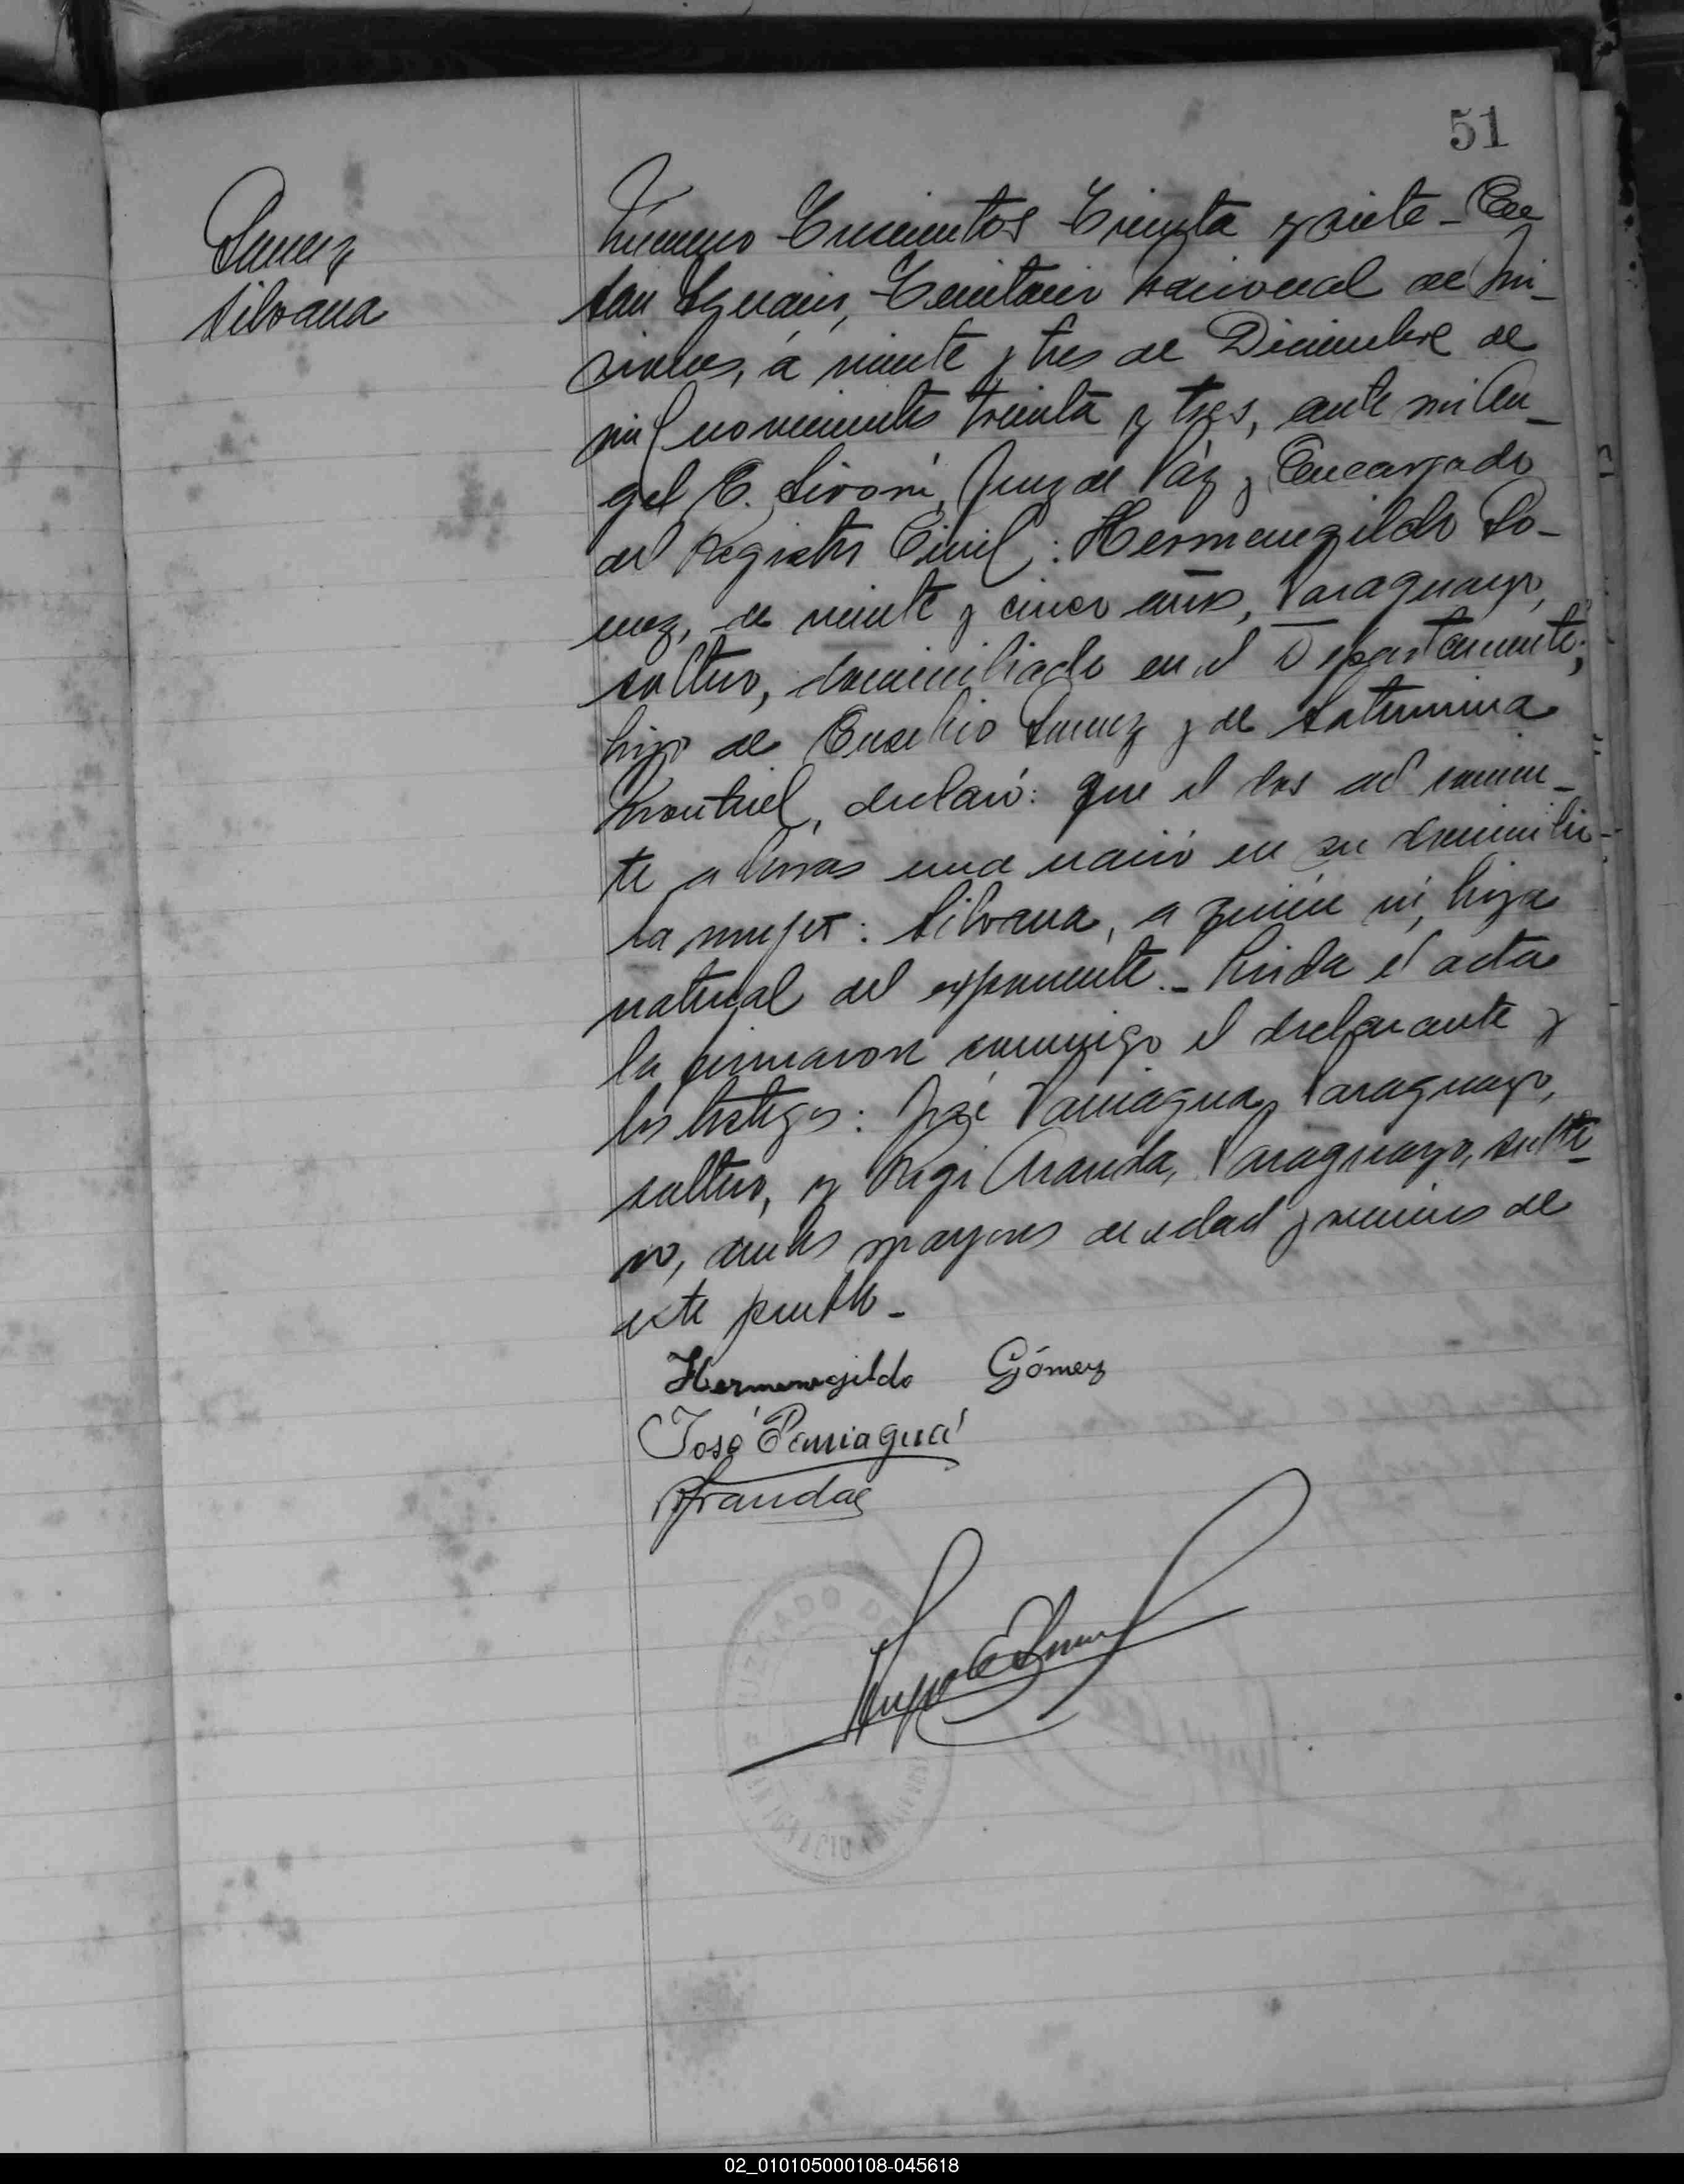 51
Gomez
Silvana
Número Trescientos Treinta y siete - En
San Ignacio, Territorio Nacional de Mi-
siones, á veinte y tres de Diciembre de
mil novecientos treinta y tres, ante mi An-
gel E. Juez de Páz y Encargado
del Registro Civil: Hermenegildo Gó-
mez, de veinte y cinco años, Paraguayo,
soltero, domiciliado en el Departamento;
hijo de Eusebio Gomez y de Saturnina
Montiel, declaró: que el dos del corrien-
te a horas una nació en su domicilio
la mujer: Silvana, a quién vi, hija
natural del exponente. - Leida el acta
la firmaron conmigo el declarante y
los testigos: José Paniagua, Paraguayo,
soltero, y Aranda, Paraguayo, solte-
ro, ambos mayores de edad y vecinos de
este pueblo -
Hermenegildo Gómez
José Paniaguá
Aranda
JUZGADO DE
02_010105000108-045618